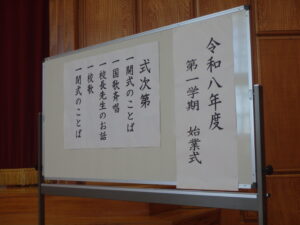 令和八年度
第一学期 始業式
式次第
一開式のことば
一国歌斉唱
一校長先生のお話
一校歌
一閉式のことば